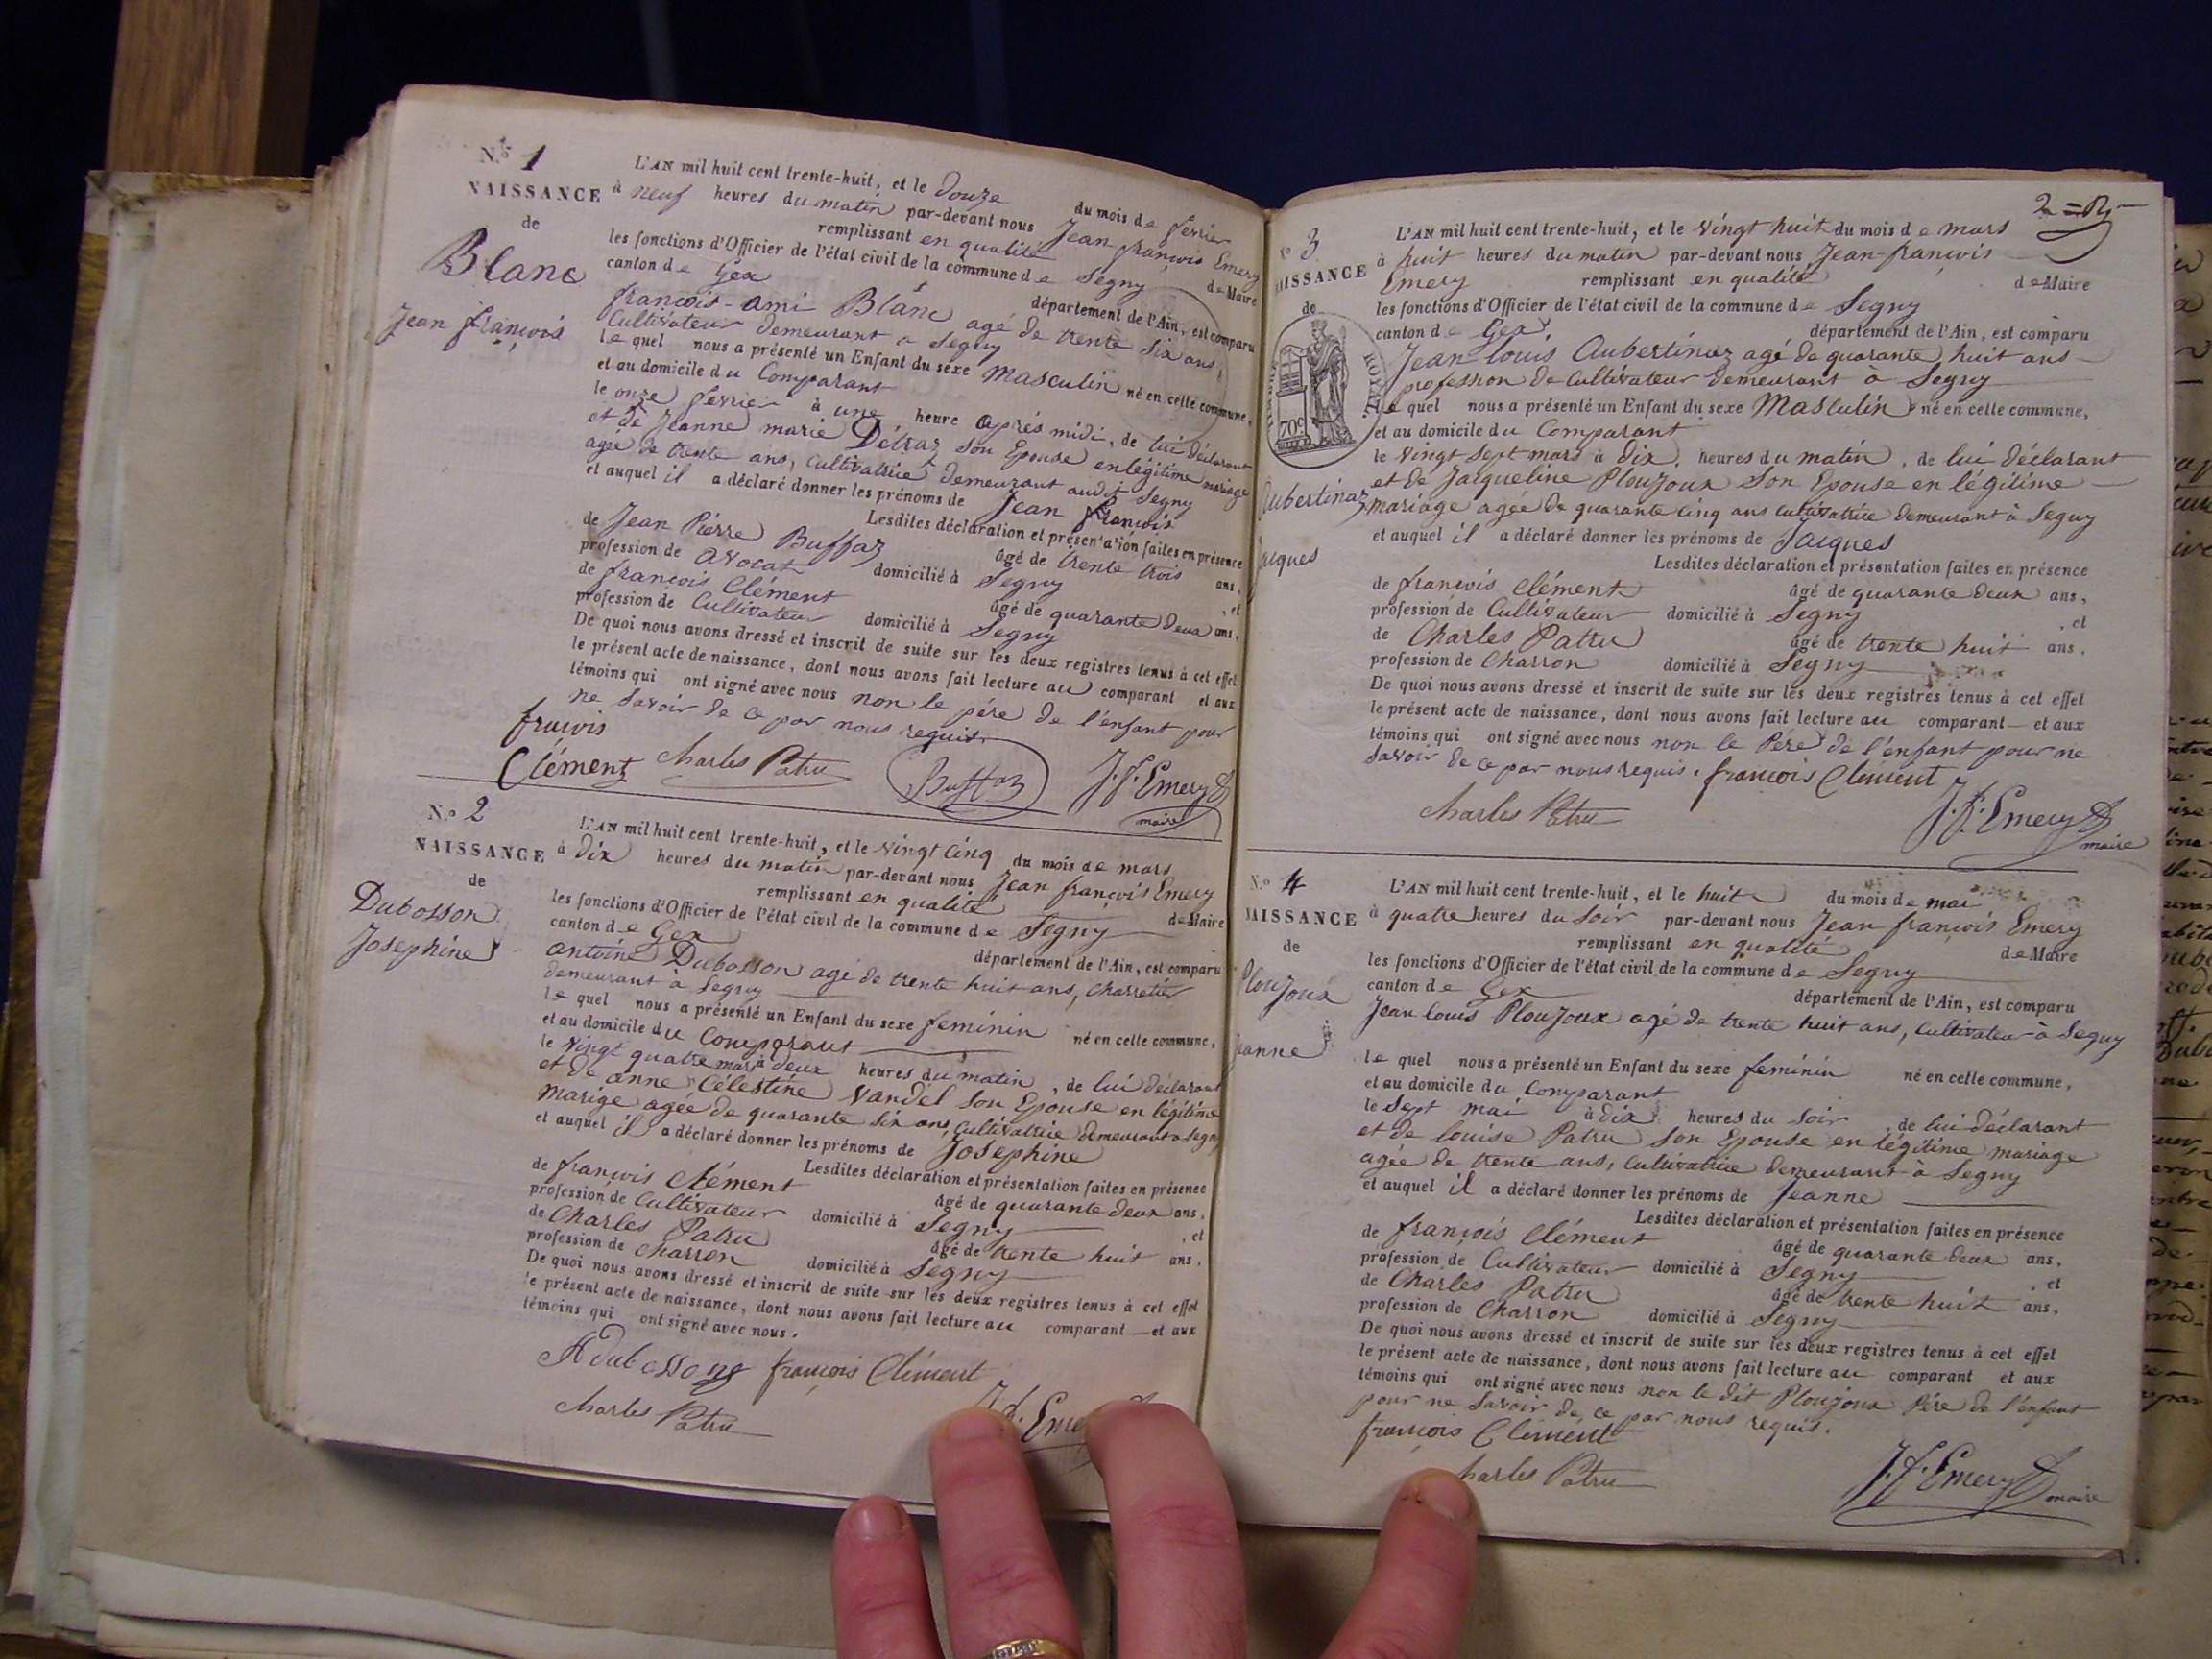 N.º 1
NAISSANCE
de
Blanc
Jean françois
L'AN mil huit cent trente-huit, et le Douze du mois de fevrier
à neuf heures du matin par-devant nous Jean françois Emery
remplissant en qualité de Maire
les fonctions d'Officier de l'état civil de la commune de Segny
canton de Gex département de l'Ain, est comparu
françois-ami Blanc agé de trente six ans,
Cultivateur demeurant a Segny
le quel nous a présenté un Enfant du sexe masculin né en cette commune,
et au domicile du Comparant
le onze fevrier à une heure après midi, de lui déclarant
et de Jeanne marie Détraz son Epouse en légitime mariage
agée de trente ans, cultivatrice demeurant audit Segny
et auquel il a déclaré donner les prénoms de Jean françois
Lesdites déclaration et présentation faites en présence
de Jean Pierre Buffaz âgé de trente trois ans,
profession de avocat domicilié à Segny , et
de françois Clément âgé de quarante deux ans,
profession de Cultivateur domicilié à Segny
De quoi nous avons dressé et inscrit de suite sur les deux registres tenus à cet effet
le présent acte de naissance, dont nous avons fait lecture au comparant et aux
témoins qui ont signé avec nous non le père de l'enfant pour
ne Savoir de ce par nous requis
françois
Clément Charles Patru Buffaz J. f. Emery
maire
N.º 2
NAISSANCE
de
Dubosson
Josephine
L'AN mil huit cent trente-huit, et le vingt cinq du mois de mars
à dix heures du matin par-devant nous Jean françois Emery
remplissant en qualité de Maire
les fonctions d'Officier de l'état civil de la commune de Segny
canton de Gex département de l'Ain, est comparu
antoine Dubosson agé de trente huit ans, charretier
demeurant à Segny
le quel nous a présenté un Enfant du sexe feminin né en cette commune,
et au domicile du Comparant
le vingt quatre mars à deux heures du matin, de lui déclarant
et de anne Célestine Vandel son Epouse en légitime
marige agée de quarante six ans, cultivatrice demeurant a Segny
et auquel il a déclaré donner les prénoms de Josephine
Lesdites déclaration et présentation faites en présence
de françois Clément âgé de quarante deux ans,
profession de Cultivateur domicilié à Segny , et
de Charles Patru âgé de trente huit ans,
profession de charron domicilié à Segny
De quoi nous avons dressé et inscrit de suite sur les deux registres tenus à cet effet
le présent acte de naissance, dont nous avons fait lecture au comparant et aux
témoins qui ont signé avec nous.
françois Clément
Charles Patru
N.º 3
NAISSANCE
de
ROYAL
70c
Aubertinaz
Jacques
L'AN mil huit cent trente-huit, et le vingt huit du mois de mars
à huit heures du matin par-devant nous Jean-françois
Emery remplissant en qualité de Maire
les fonctions d'Officier de l'état civil de la commune de Segny
canton de Gex département de l'Ain, est comparu
Jean louis Aubertinaz agé de quarante huit ans
profession de Cultivateur demeurant à Segny
le quel nous a présenté un Enfant du sexe Masculin né en cette commune,
et au domicile du Comparant
le vingt sept mars à dix heures du matin, de lui déclarant
et de Jacqueline Ploujoux son Epouse en légitime
mariage agée de quarante cinq ans cultivatrice demeurant à Segny
et auquel il a déclaré donner les prénoms de Jacques
Lesdites déclaration et présentation faites en présence
de françois Clément âgé de quarante deux ans,
profession de Cultivateur domicilié à Segny , et
de Charles Patru âgé de trente huit ans,
profession de Charron domicilié à Segny
De quoi nous avons dressé et inscrit de suite sur les deux registres tenus à cet effet
le présent acte de naissance, dont nous avons fait lecture au comparant et aux
témoins qui ont signé avec nous non le Père de l'enfant pour ne
Savoir de ce par nous requis. françois Clément
Charles Patru J. f. Emery
maire
N.º 4
NAISSANCE
de
Ploujoux
Jeanne
L'AN mil huit cent trente-huit, et le huit du mois de mai
à quatre heures du Soir par-devant nous Jean françois Emery
remplissant en qualité de Maire
les fonctions d'Officier de l'état civil de la commune de Segny
canton de Gex département de l'Ain, est comparu
Jean louis Ploujoux agé de trente huit ans, cultivateur à Segny
le quel nous a présenté un Enfant du sexe feminin né en cette commune,
et au domicile du Comparant
le sept mai à dix heures du Soir, de lui déclarant
et de louise Patru son Epouse en légitime mariage
agée de trente ans, cultivatrice demeurant à Segny
et auquel il a déclaré donner les prénoms de Jeanne
Lesdites déclaration et présentation faites en présence
de françois Clément âgé de quarante deux ans,
profession de Cultivateur domicilié à Segny , et
de Charles Patru âgé de trente huit ans,
profession de Charron domicilié à Segny
De quoi nous avons dressé et inscrit de suite sur les deux registres tenus à cet effet
le présent acte de naissance, dont nous avons fait lecture au comparant et aux
témoins qui ont signé avec nous non le dit Ploujoux Père de l'enfant
pour ne Savoir de ce par nous requis.
françois Clément
Charles Patru J. f. Emery
maire